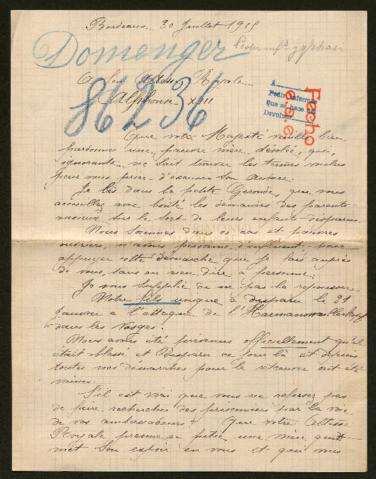 Bordeaux, 30 Juillet 1915
Domenger
A Son Altesse Royale
Alphonse XIII
86236
Fecho
c.a.e.
A
Pedir referencia
que se hace
Devolver
Que votre Majesté veuille bien
pardonner une pauvre mère désolée, qui,
ignorante ne sait trouver les termes voulus
pour vous prier d'excuser son audace.
Je lis dans la petite Gironde, que vous
accueillez avec bonté les démarches des parents
anxieux sur le sort de leurs enfants disparus.
Nous sommes dans ce cas et pauvres
ouvriers, n'avons personne d'influent, pour
appuyer cette démarche que je fais auprès
de vous, sans en rien dire à personne.
Je vous supplie de ne pas la repousser.
Notre fils unique a disparu le 21
Janvier à l'attaque de l'
dans les Vosges.
Nous avons été prévenus officiellement qu'il
était blessé et disparu ce jour là et depuis
toutes nos démarches pour le retrouver ont été
vaines.
S'il est vrai que vous ne refusez pas
de faire rechercher des personnes par la voie
de vos ambassadeurs! Que votre Altesse
Royale prenne en pitié une mère qui
met son espoir en vous et que mes